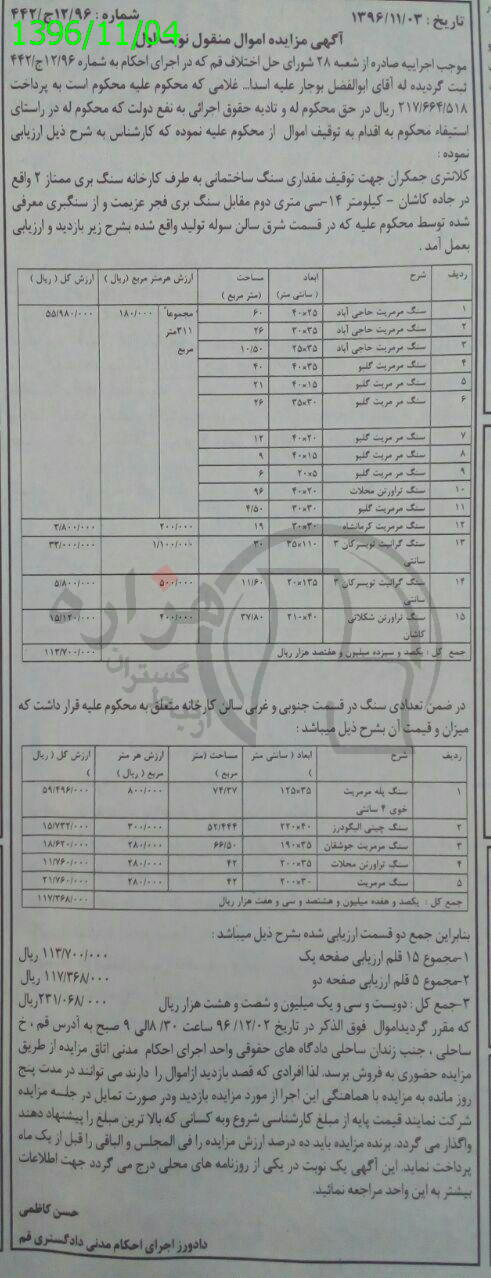 تاریخ : ۱۳۹۶/۱۱/۰۳
شماره : ۴۴۲/ج/۱۲/۹۶
1396/11/04
آگهی مزایده اموال منقول نوبت اول
موجب اجراییه صادره از شعبه ۲۸ شورای حل اختلاف قم که در اجرای احکام به شماره ۴۴۲/ج/۱۲/۹۶
ثبت گردیده له آقای ابوالفضل بوجار علیه اسدا... غلامی که محکوم علیه محکوم است به پرداخت
۲۱۷/۶۶۴/۵۱۸ ریال در حق محکوم له و تادیه حقوق اجرائی به نفع دولت که محکوم له در راستای
استیفاء محکوم به اقدام به توقیف اموال از محکوم علیه نموده که کارشناس به شرح ذیل ارزیابی
نموده :
کلانتری جمکران جهت توقیف مقداری سنگ ساختمانی به طرف کارخانه سنگ بری ممتاز ۲ واقع
در جاده کاشان - کیلومتر ۱۴-سی متری دوم مقابل سنگ بری فجر عزیمت و از سنگبری معرفی
شده توسط محکوم علیه که در قسمت شرق سالن سوله تولید واقع شده بشرح زیر بازدید و ارزیابی
بعمل آمد .
ردیف شرح ابعاد ( سانتی متر) مساحت (متر مربع ) ارزش هرمتر مربع (ریال ) ارزش کل ( ریال )
۱ سنگ مرمریت حاجی آباد ۴۰×۲۵ ۶۰ مجموعاً ۳۱۱متر مربع ۱۸۰/۰۰۰ ۵۵/۹۸۰/۰۰۰
۲ سنگ مرمریت حاجی آباد ۳۰×۳۵ ۲۶
۳ سنگ مرمریت حاجی آباد ۲۵×۳۵ ۱۰/۵۰
۴ سنگ مرمریت گلبو ۴۰×۳۵ ۴۰
۵ سنگ مر مریت گلبو ۴۰×۱۵ ۲۱
۶ سنگ مر مریت گلبو ۳۵×۳۰ ۲۶
۷ سنگ مر مریت گلبو ۴۰×۲۰ ۱۲
۸ سنگ مر مریت گلبو ۴۰×۱۵ ۹
۹ سنگ مر مریت گلبو ۲۰×۵ ۶
۱۰ سنگ تراورتن محلات ۴۰×۲۰ ۹۶
۱۱ سنگ مرمریت گلبو ۳۰×۳۰ ۴/۵۰
۱۲ سنگ مرمریت کرمانشاه ۳۰×۳۰ ۱۹ ۲۰۰/۰۰۰ ۳/۸۰۰/۰۰۰
۱۳ سنگ گرانیت تویسرکان ۳ سانتی ۳۵×۱۱۰ ۳۰ ۱/۱۰۰/۰۰۰ ۳۳/۰۰۰/۰۰۰
۱۴ سنگ گرانیت تویسرکان ۳ سانتی ۲۰×۱۳۵ ۱۱/۶۰ ۵۰۰/۰۰۰ ۵/۸۰۰/۰۰۰
۱۵ سنگ تراورتن شکلاتی کاشان ۲۱۰×۴۰ ۳۷/۸۰ ۴۰۰/۰۰۰ ۱۵/۱۲۰/۰۰۰
جمع کل : یکصد و سیزده میلیون و هفتصد هزار ریال ۱۱۳/۷۰۰/۰۰۰
هزاره
گستران
در ضمن تعدادی سنگ در قسمت جنوبی و غربی سالن کارخانه متعلق به محکوم علیه قرار داشت که
میزان و قیمت آن بشرح ذیل میباشد :
ردیف شرح ابعاد ( سانتی متر ) مساحت (متر مربع ) ارزش هر متر مربع ( ریال ) ارزش کل ( ریال )
۱ سنگ پله مرمریت خوی ۴ سانتی ۱۲۵×۳۵ ۷۴/۳۷ ۸۰۰/۰۰۰ ۵۹/۴۹۶/۰۰۰
۲ سنگ چینی الیگودرز ۲۲۰×۴۰ ۵۲/۴۴۴ ۳۰۰/۰۰۰ ۱۵/۷۳۲/۰۰۰
۳ سنگ مرمریت جوشقان ۱۹۰×۳۵ ۶۶/۵۰ ۲۸۰/۰۰۰ ۱۸/۶۲۰/۰۰۰
۴ سنگ تراورتن محلات ۲۰۰×۳۵ ۴۲ ۲۸۰/۰۰۰ ۱۱/۷۶۰/۰۰۰
۵ سنگ مرمریت ۲۰۰×۳۰ ۴۲ ۲۸۰/۰۰۰ ۲۱/۷۶۰/۰۰۰
جمع کل : یکصد و هفده میلیون و هشتصد و سی و هفت هزار ریال ۱۱۷/۳۶۸/۰۰۰
بنابراین جمع دو قسمت ارزیابی شده بشرح ذیل میباشد :
۱-مجموع ۱۵ قلم ارزیابی صفحه یک ۱۱۳/۷۰۰/۰۰۰ ریال
۲-مجموع ۵ قلم ارزیابی صفحه دو ۱۱۷/۳۶۸/۰۰۰ ریال
۳-جمع کل : دویست و سی و یک میلیون و شصت و هشت هزار ریال ۲۳۱/۰۶۸/۰۰۰ریال
که مقرر گردیداموال فوق الذکر در تاریخ ۹۶/۱۲/۰۲ ساعت ۸/۳۰ الی ۹ صبح به آدرس قم ، خ
ساحلی ، جنب زندان ساحلی دادگاه های حقوقی واحد اجرای احکام مدنی اتاق مزایده از طریق
مزایده حضوری به فروش برسد. لذا افرادی که قصد بازدید ازاموال را دارند می توانند در مدت پنج
روز مانده به مزایده با هماهنگی این اجرا از مورد مزایده بازدید ودر صورت تمایل در جلسه مزایده
شرکت نمایند قیمت پایه از مبلغ کارشناسی شروع وبه کسانی که بالا ترین مبلغ را پیشنهاد دهند
واگذار می گردد. برنده مزایده باید ده درصد ارزش مزایده را فی المجلس و الباقی را قبل از یک ماه
پرداخت نماید. این آگهی یک نوبت در یکی از روزنامه های محلی درج می گردد جهت اطلاعات
بیشتر به این واحد مراجعه نمائید.
حسن کاظمی
دادورز اجرای احکام مدنی دادگستری قم